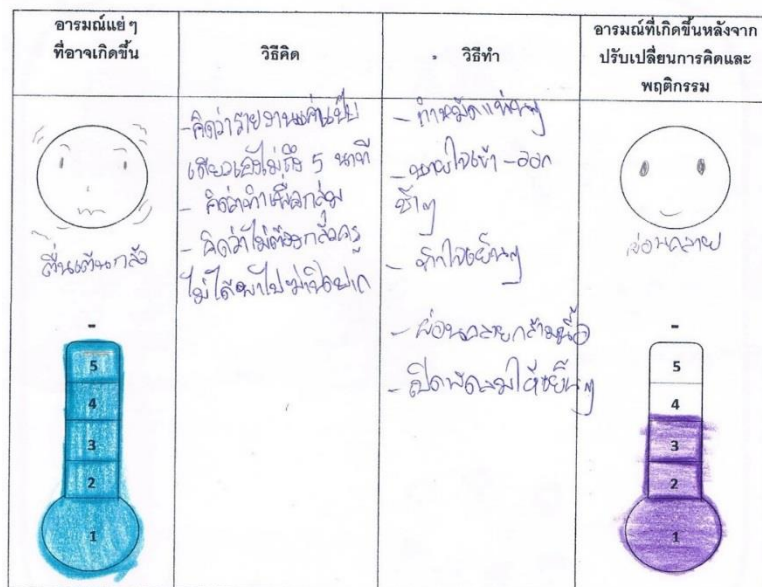 อารมณ์แย่ ๆ
ที่อาจเกิดขึ้น
วิธีคิด
วิธีทำ
อารมณ์ที่เกิดขึ้นหลังจาก
ปรับเปลี่ยนการคิดและ
พฤติกรรม
ตื่นเต้นกลัว
- คิดว่ารายงานแค่แป๊บ
เดียวเองไม่ถึง 5 นาที
- คิดว่าทำเพื่อกลุ่ม
- คิดว่าไม่ต้องกลัวครู
ไม่ได้พาไป
- กำหมัดแน่นๆ
- หายใจเข้า-ออก
ช้าๆ
- ทำใจเย็นๆ
- ผ่อนคลายกล้ามเนื้อ
- เปิดพัดลมให้เย็นๆ
ผ่อนคลาย
-
5
4
3
2
1
-
5
4
3
2
1